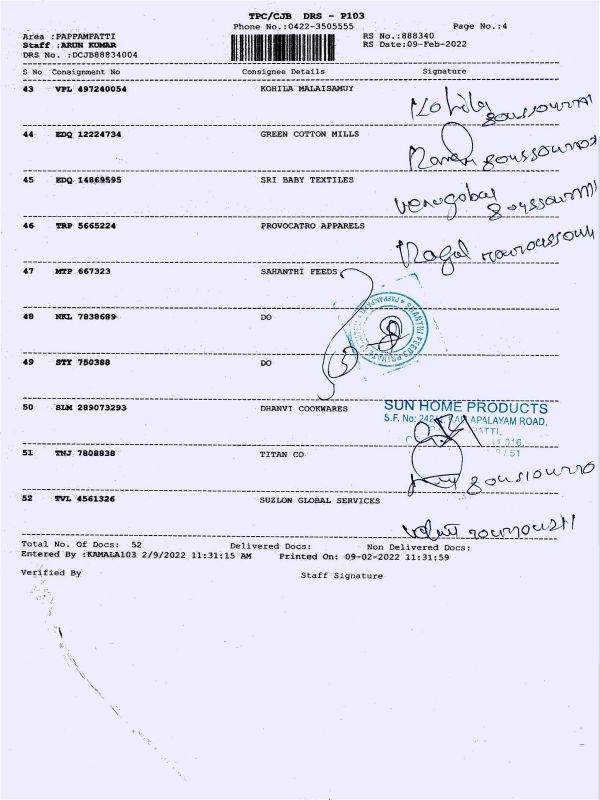 TPC/CJB DRS - P103
Phone No.:0422-3505555 Page No.:4
Area :PAPPAMPATTI RS No.:888340
Staff :ARUN KUMAR RS Date:09-Feb-2022
DRS No. :DCJB88834004
S No Consignment No Consignee Details Signature
43 VPL 497240054 KOHILA MALAISAMUY
44 EDQ 12224734 GREEN COTTON MILLS
45 EDQ 14869595 SRI BABY TEXTILES
46 TRP 5665224 PROVOCATRO APPARELS
47 MTP 667323 SAHANTHI FEEDS
48 NKL 7838689 DO
49 STY 750388 DO
50 SLM 289073293 DHANVI COOKWARES
SUN HOME PRODUCTS
APALAYAM ROAD,
51 TNJ 7808838 TITAN CO
52 TVL 4561326 SUZLON GLOBAL SERVICES
Total No. Of Docs: 52 Delivered Docs: Non Delivered Docs:
Entered By :KAMALA103 2/9/2022 11:31:15 AM Printed On: 09-02-2022 11:31:59
Verified By Staff Signature